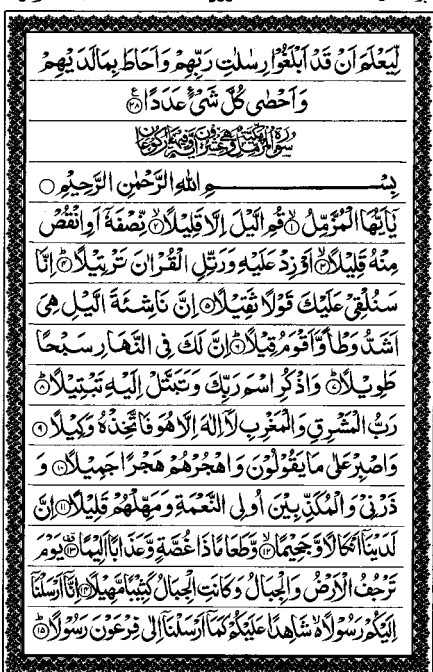 لِّيَعْلَمَ اَنْ قَدْ اَبْلَغُوْا رِسٰلٰتِ رَبِّهِمْ وَاَحَاطَ بِمَا لَدَيْهِمْ
وَاَحْصٰى كُلَّ شَیْءٍ عَدَدًا ﴿۲۸﴾ ع
بِسْمِ اللّٰهِ الرَّحْمٰنِ الرَّحِيْمِ ○
يٰۤاَيُّهَا الْمُزَّمِّلُ ﴿۱﴾ قُمِ الَّيْلَ اِلَّا قَلِيْلًا ﴿۲﴾ نِّصْفَهٗۤ اَوِ انْقُصْ
مِنْهُ قَلِيْلًا ﴿۳﴾ اَوْ زِدْ عَلَيْهِ وَرَتِّلِ الْقُرْاٰنَ تَرْتِيْلًا ﴿۴﴾ اِنَّا
سَنُلْقِیْ عَلَيْكَ قَوْلًا ثَقِيْلًا ﴿۵﴾ اِنَّ نَاشِئَةَ الَّيْلِ هِیَ
اَشَدُّ وَطْاً وَّاَقْوَمُ قِيْلًا ﴿۶﴾ اِنَّ لَكَ فِی النَّهَارِ سَبْحًا
طَوِيْلًا ﴿۷﴾ وَاذْكُرِ اسْمَ رَبِّكَ وَتَبَتَّلْ اِلَيْهِ تَبْتِيْلًا ﴿۸﴾
رَبُّ الْمَشْرِقِ وَالْمَغْرِبِ لَاۤ اِلٰهَ اِلَّا هُوَ فَاتَّخِذْهُ وَكِيْلًا ﴿۹﴾
وَاصْبِرْ عَلٰى مَا يَقُوْلُوْنَ وَاهْجُرْهُمْ هَجْرًا جَمِيْلًا ﴿۱۰﴾ وَ
ذَرْنِیْ وَالْمُكَذِّبِيْنَ اُولِی النَّعْمَةِ وَمَهِّلْهُمْ قَلِيْلًا ﴿۱۱﴾ اِنَّ
لَدَيْنَاۤ اَنْكَالًا وَّجَحِيْمًا ﴿۱۲﴾ وَّطَعَامًا ذَا غُصَّةٍ وَّعَذَابًا اَلِيْمًا ﴿۱۳﴾ يَوْمَ
تَرْجُفُ الْاَرْضُ وَالْجِبَالُ وَكَانَتِ الْجِبَالُ كَثِيْبًا مَّهِيْلًا ﴿۱۴﴾ اِنَّاۤ اَرْسَلْنَاۤ
اِلَيْكُمْ رَسُوْلًا شَاهِدًا عَلَيْكُمْ كَمَاۤ اَرْسَلْنَاۤ اِلٰى فِرْعَوْنَ رَسُوْلًا ﴿۱۵﴾